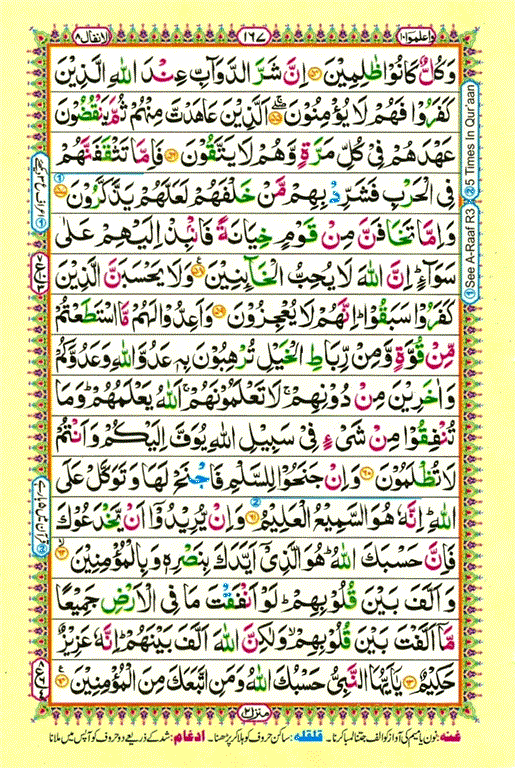 واعلموا ١٠
١٦٧
الانفال ٨
وَكُلٌّ كَانُوْا ظٰلِمِيْنَ ﴿٥٤﴾ اِنَّ شَرَّ الدَّوَآبِّ عِنْدَ اللّٰهِ الَّذِيْنَ
كَفَرُوْا فَهُمْ لَا يُؤْمِنُوْنَ ﴿٥٥﴾ اَلَّذِيْنَ عَاهَدْتَّ مِنْهُمْ ثُمَّ يَنْقُضُوْنَ
عَهْدَهُمْ فِيْ كُلِّ مَرَّةٍ وَّهُمْ لَا يَتَّقُوْنَ ﴿٥٦﴾ فَاِمَّا تَثْقَفَنَّهُمْ
فِي الْحَرْبِ فَشَرِّدْ بِهِمْ مَّنْ خَلْفَهُمْ لَعَلَّهُمْ يَذَّكَّرُوْنَ ﴿٥٧﴾
وَاِمَّا تَخَافَنَّ مِنْ قَوْمٍ خِيَانَةً فَانْۢبِذْ اِلَيْهِمْ عَلٰى
سَوَآءٍ ؕ اِنَّ اللّٰهَ لَا يُحِبُّ الْخَآئِنِيْنَ ﴿٥٨﴾ وَلَا يَحْسَبَنَّ الَّذِيْنَ
كَفَرُوْا سَبَقُوْا ؕ اِنَّهُمْ لَا يُعْجِزُوْنَ ﴿٥٩﴾ وَاَعِدُّوْا لَهُمْ مَّا اسْتَطَعْتُمْ
مِّنْ قُوَّةٍ وَّمِنْ رِّبَاطِ الْخَيْلِ تُرْهِبُوْنَ بِهٖ عَدُوَّ اللّٰهِ وَعَدُوَّكُمْ
وَاٰخَرِيْنَ مِنْ دُوْنِهِمْ ۚ لَا تَعْلَمُوْنَهُمْ ۚ اَللّٰهُ يَعْلَمُهُمْ ؕ وَمَا
تُنْفِقُوْا مِنْ شَيْءٍ فِيْ سَبِيْلِ اللّٰهِ يُوَفَّ اِلَيْكُمْ وَاَنْتُمْ
لَا تُظْلَمُوْنَ ﴿٦٠﴾ وَاِنْ جَنَحُوْا لِلسَّلْمِ فَاجْنَحْ لَهَا وَتَوَكَّلْ عَلَى
اللّٰهِ ؕ اِنَّهٗ هُوَ السَّمِيْعُ الْعَلِيْمُ ﴿٦١﴾ وَاِنْ يُّرِيْدُوْۤا اَنْ يَّخْدَعُوْكَ
فَاِنَّ حَسْبَكَ اللّٰهُ ؕ هُوَ الَّذِيْۤ اَيَّدَكَ بِنَصْرِهٖ وَبِالْمُؤْمِنِيْنَ ﴿٦٢﴾
وَاَلَّفَ بَيْنَ قُلُوْبِهِمْ ؕ لَوْ اَنْفَقْتَ مَا فِي الْاَرْضِ جَمِيْعًا
مَّاۤ اَلَّفْتَ بَيْنَ قُلُوْبِهِمْ ۙ وَلٰكِنَّ اللّٰهَ اَلَّفَ بَيْنَهُمْ ؕ اِنَّهٗ عَزِيْزٌ
حَكِيْمٌ ﴿٦٣﴾ يٰۤاَيُّهَا النَّبِيُّ حَسْبُكَ اللّٰهُ وَمَنِ اتَّبَعَكَ مِنَ الْمُؤْمِنِيْنَ ﴿٦٤﴾
① See A-Raaf R3 ② 5 Times In Qur'aan
منزل ٢
غنه: نون یا میم کی آواز کو الف جتنا لمبا کرنا۔ قلقله: ساکن حروف کو ہلا کر پڑھنا۔ ادغام: شد کے ذریعے دو حروف کو آپس میں ملانا